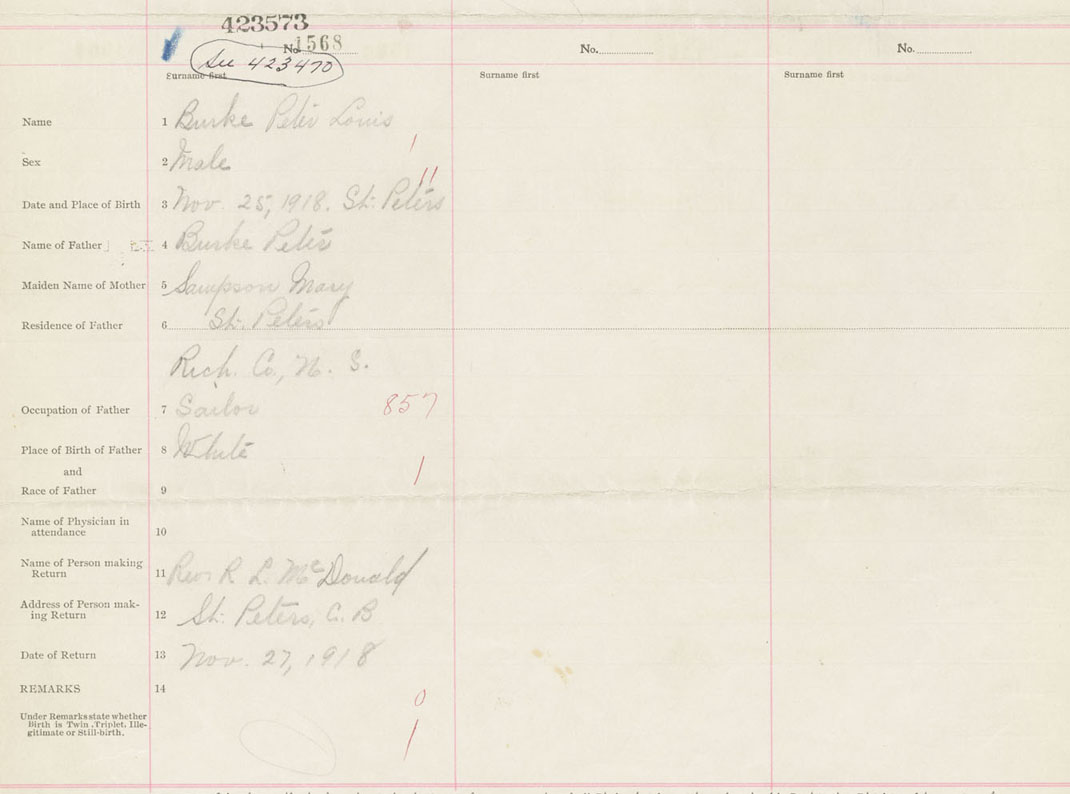 423573
No. 1568 No. No.
See 423470
Surname first Surname first Surname first
Name 1 Burke Peter Louis
1
Sex 2 Male
11
Date and Place of Birth 3 Nov. 25, 1918. St. Peters
Name of Father 4 Burke Peter
Maiden Name of Mother 5 Sampson Mary
Residence of Father 6 St. Peters
Rich. Co., N. S.
Occupation of Father 7 Sailor 857
Place of Birth of Father 8 White
and
1
Race of Father 9
Name of Physician in
attendance 10
Name of Person making
Return 11 Rev R. L. McDonald
Address of Person mak-
ing Return 12 St. Peters, C. B
Date of Return 13 Nov. 27, 1918
REMARKS 14
0
Under Remarks state whether
Birth is Twin, Triplet, Ille-
gitimate or Still-birth.
1